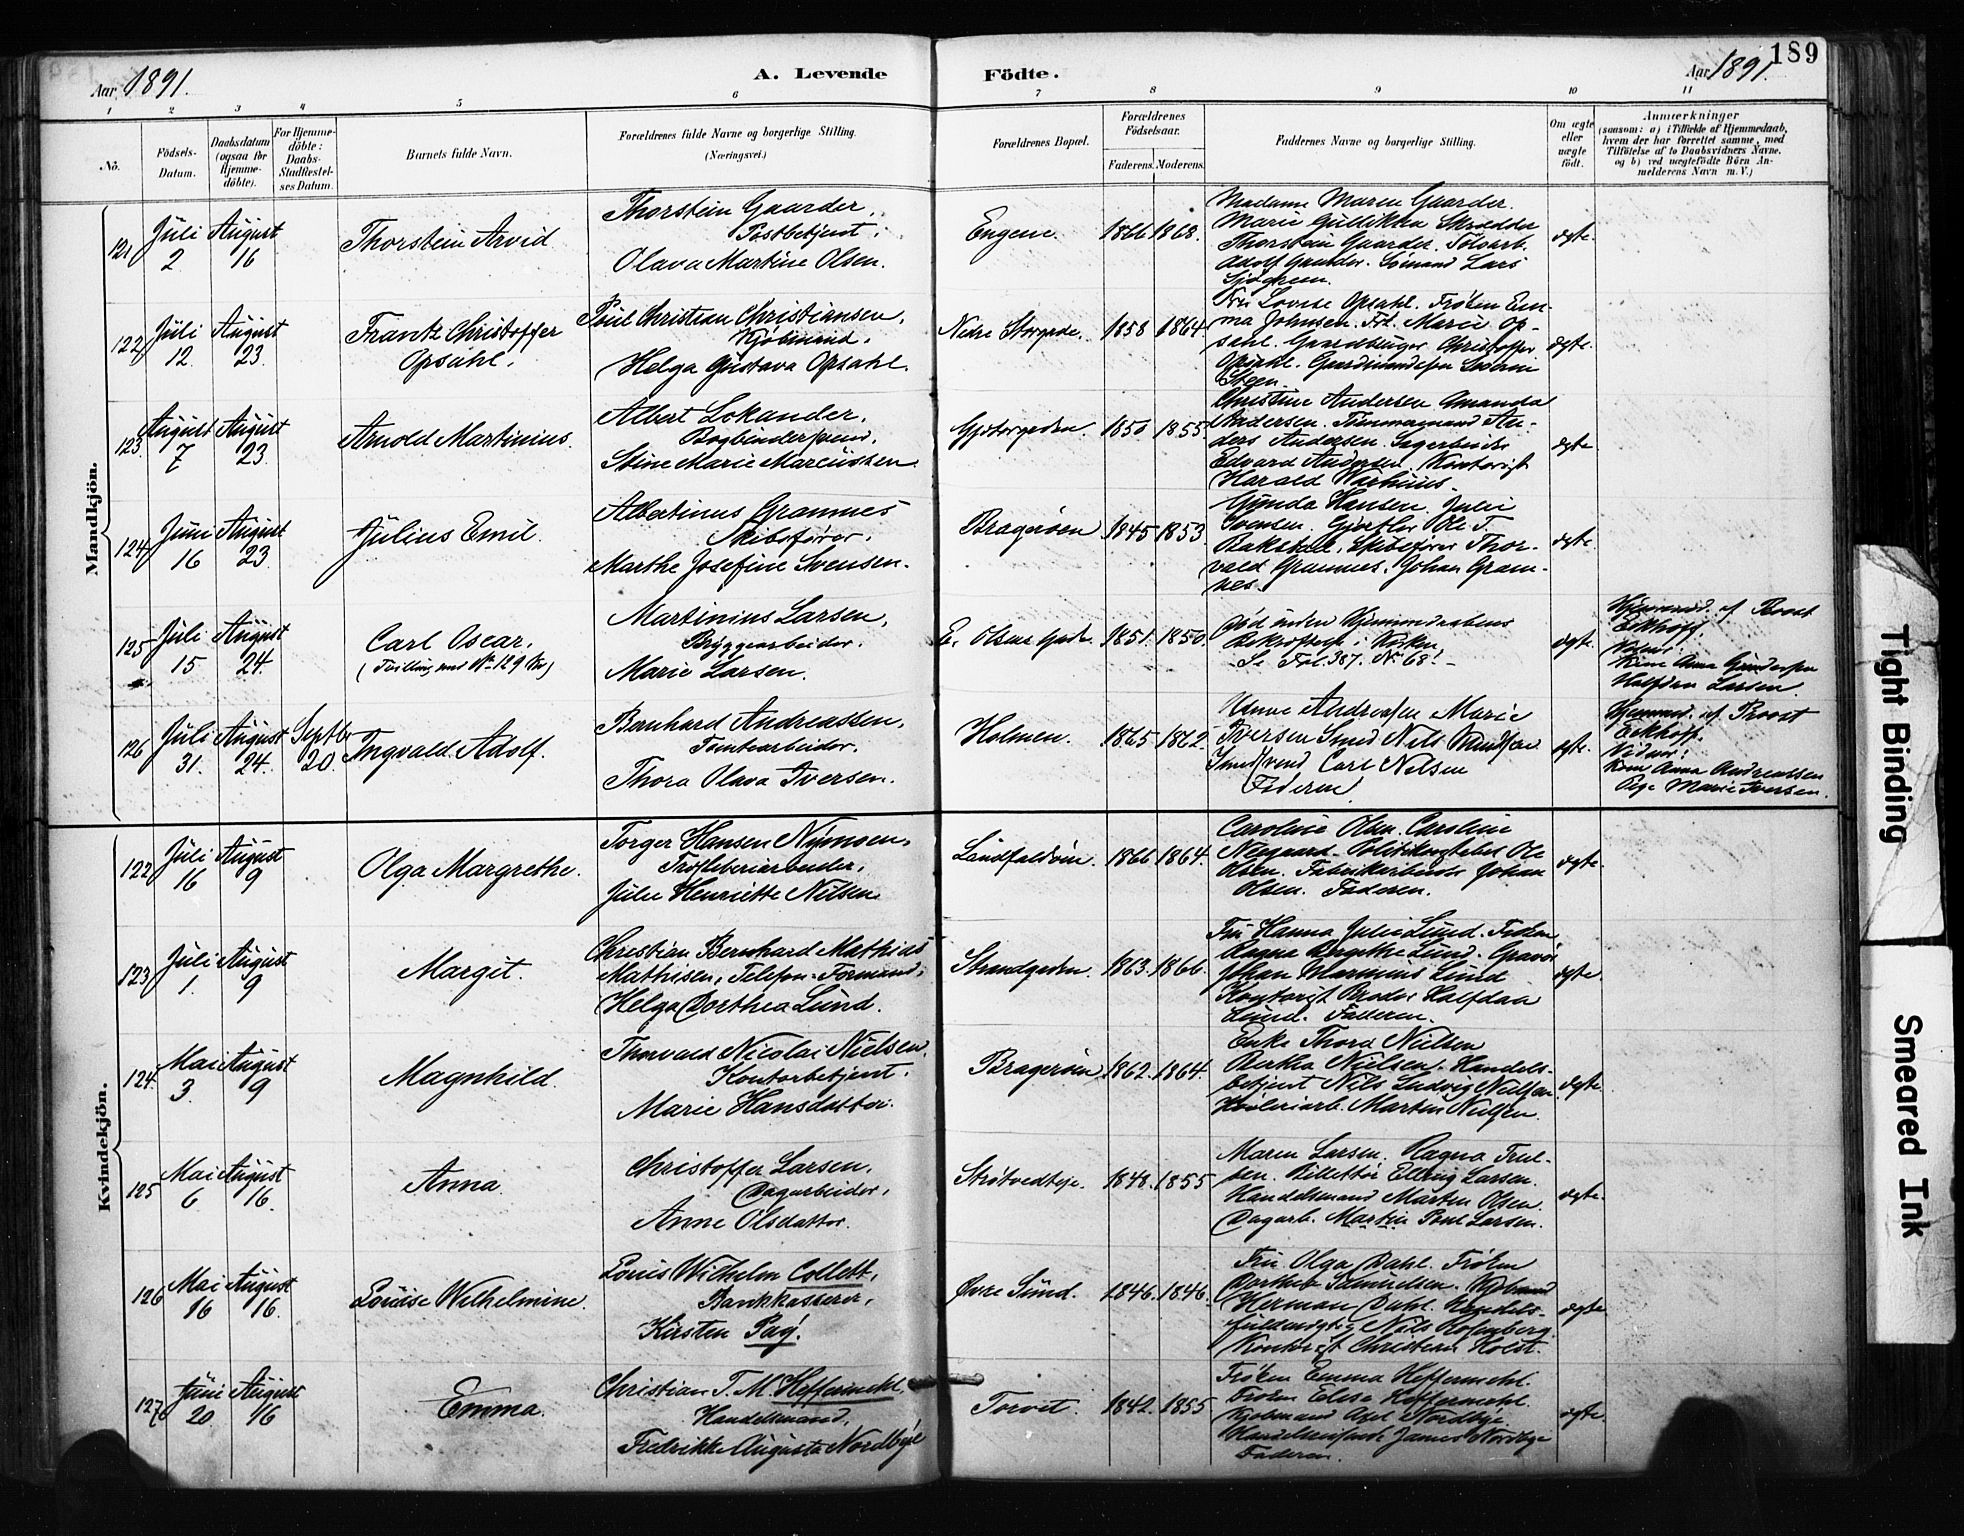 189
Aar 1891.
A. Levende
Födte.
Aar 1891.
1 2 3 4 5 6 7 8 9 10 11
No.
Födsels-Datum.
Daabsdatum (ogsaa for Hjemme-döbte).
For Hjemme-döbte: Daabs-Stadfæstel-ses Datum.
Barnets fulde Navn.
Forældrenes fulde Navne og borgerlige Stilling. (Næringsvei.)
Forældrenes Bopæl.
Forældrenes Födselsaar.
Faderens. Moderens.
Faddernes Navne og borgerlige Stilling.
Om ægte eller uægte födt.
Anmærkninger
(saasom: a) i Tilfælde af Hjemmedaab, hvem der har forrettet samme, med Tilföielse af to Daabsvidners Navne, og b) ved uægtefödte Börn An-melderens Navn m. V.)
Mandkjön.
121 Juli 2 August 16 Thorstein Arvid
Thorstein Gaarder,
Postbetjent,
Olava Martine Olsen.
Engene. 1866 1868.
Madame Maren Gaarder.
Marie Guldikken Skrædder
Thorstein Gaarder. Toldarb.
Adolf Gaarder. Sömand Lars
Sjögreen.
ægte.
122 Juli 12. August 23. Frantz Christoffer
Opsahl.
Poul Christian Christiansen,
Kjöbmand,
Helga Gustava Opsahl.
Nedre Storgade. 1858 1864.
Fru Lovise Opsahl. Fröken Em-
ma Johnsen. Frk. Marie Op-
sahl. Gaardbruger Christoffer
Opsahl. Gaardmandssön
Steen.
ægte.
123. August 7 August 23. Arnold Martinius.
Albert Lokander,
Bogbindersvend,
Stine Marie Marcussen.
1850 1855.
Christine Andersen Amanda
Andersen. Tömmermand An-
ders Andersen. Sagarbeider
Edvard Andersen. Kontorist
Harald
ægte.
124 Juni 16 August 23. Julius Emil.
Albertinus Gramnes
Skibsförer,
Marthe Josefine Svensen.
Bragerøen 1845 1853.
Gunda Hansen. Julie
Svensen. Gjörtler Ole T.
Bakstad, Skibsförer Thor-
vald Gramnes. Johan Gram-
nes.
ægte.
125 Juli 15 August 24. Carl Oscar,
(Tvilling med No. 129)
Martinius Larsen,
Bryggearbeider.
Marie Larsen.
1851. 1850
Död inden Hjemmedaabens
Bekræftelse i Kirken
Se Fol. 387. No 68.
ægte
Hjemmed. af Provst
Eckhoff.
Vidner:
Kone Anna Gundersen
Halfdan Larsen.
126 Juli 31. August 24. Septbr 20. Ingvald Adolf.
Bernhard Andreassen,
Tomtearbeider.
Thora Olava Iversen.
Holmen. 1865 1862.
Andreasen Marie
Iversen Smed Nils Knudsen
Smedsvend Carl Nilsen
Faderen.
ægte.
Hjemmed. af Provst
Eckhoff.
Vidner:
Kone Anna Andreassen
Pige Marie Iversen.
Kvindekjön.
122 Juli 16 August 9 Olga Margrethe.
Torger Hansen Nymoen,
Træsleberiarbeider,
Julie Henriette Nilsen.
Landfaldøen. 1866 1864.
Caroline Olsen. Caroline
Nøgaard. Politikonstabel Ole
Olsen. Fabrikarbeider Johan
Olsen. Faderen.
ægte.
123 Juli 1. August 9 Margit.
Christian Bernhard Mathias
Mathisen, Telefon-Formand,
Helga Dorthea Lund.
Strandgaden. 1863. 1866.
Fru Hanna Julie Lund. Fröken
Ragna Birgithe Lund. Gravör
Johan Marinius Lund
Kontorist Peder Halfdan
Lund. Faderen.
ægte.
124. Mai 3 August 9 Magnhild.
Thorvald Nicolai Nielsen,
Kontorbetjent.
Marie Hansdatter.
Bragerøen 1862. 1864.
Enke Thora Nielsen
Bertha Nielsen. Handels-
betjent Nils Ludvig Nielsen
Hövleriarb. Martin Nielsen.
ægte.
125 Mai 6 August 16. Anna.
Christoffer Larsen,
Dagarbeider,
Anne Olsdatter.
1848. 1855
Maren Larsen. Ragna Trul-
sen. Billettör Edvin Larsen.
Handelsmand Marten Olsen.
Dagarb. Martin Poul Larsen.
ægte.
126 Mai 16 August 16. Louise Wilhelmine.
Louis Wilhelm Collett,
Bankkasserer,
Kirsten Pay.
Øvre Sund. 1846. 1846.
Fru Olga Dahl. Fröken
Dorthea Samuelsen. Kjöbmand
Herman Dahl. Handels-
fuldmægtig Nils Rosenberg.
Kontorist Christian Holst.
ægte
127 Juni 20 August 16 Emma.
Christian T. M. Heffermehl,
Handelsmand,
Fredrikke Augusta Nordbye
Torvet. 1842. 1855
Fröken Emma Heffermehl.
Fröken Elise Heffermehl.
Kjöbmand Axel Nordbye.
James Nordbye
Faderen.
ægte.
Tight Binding
Smeared Ink